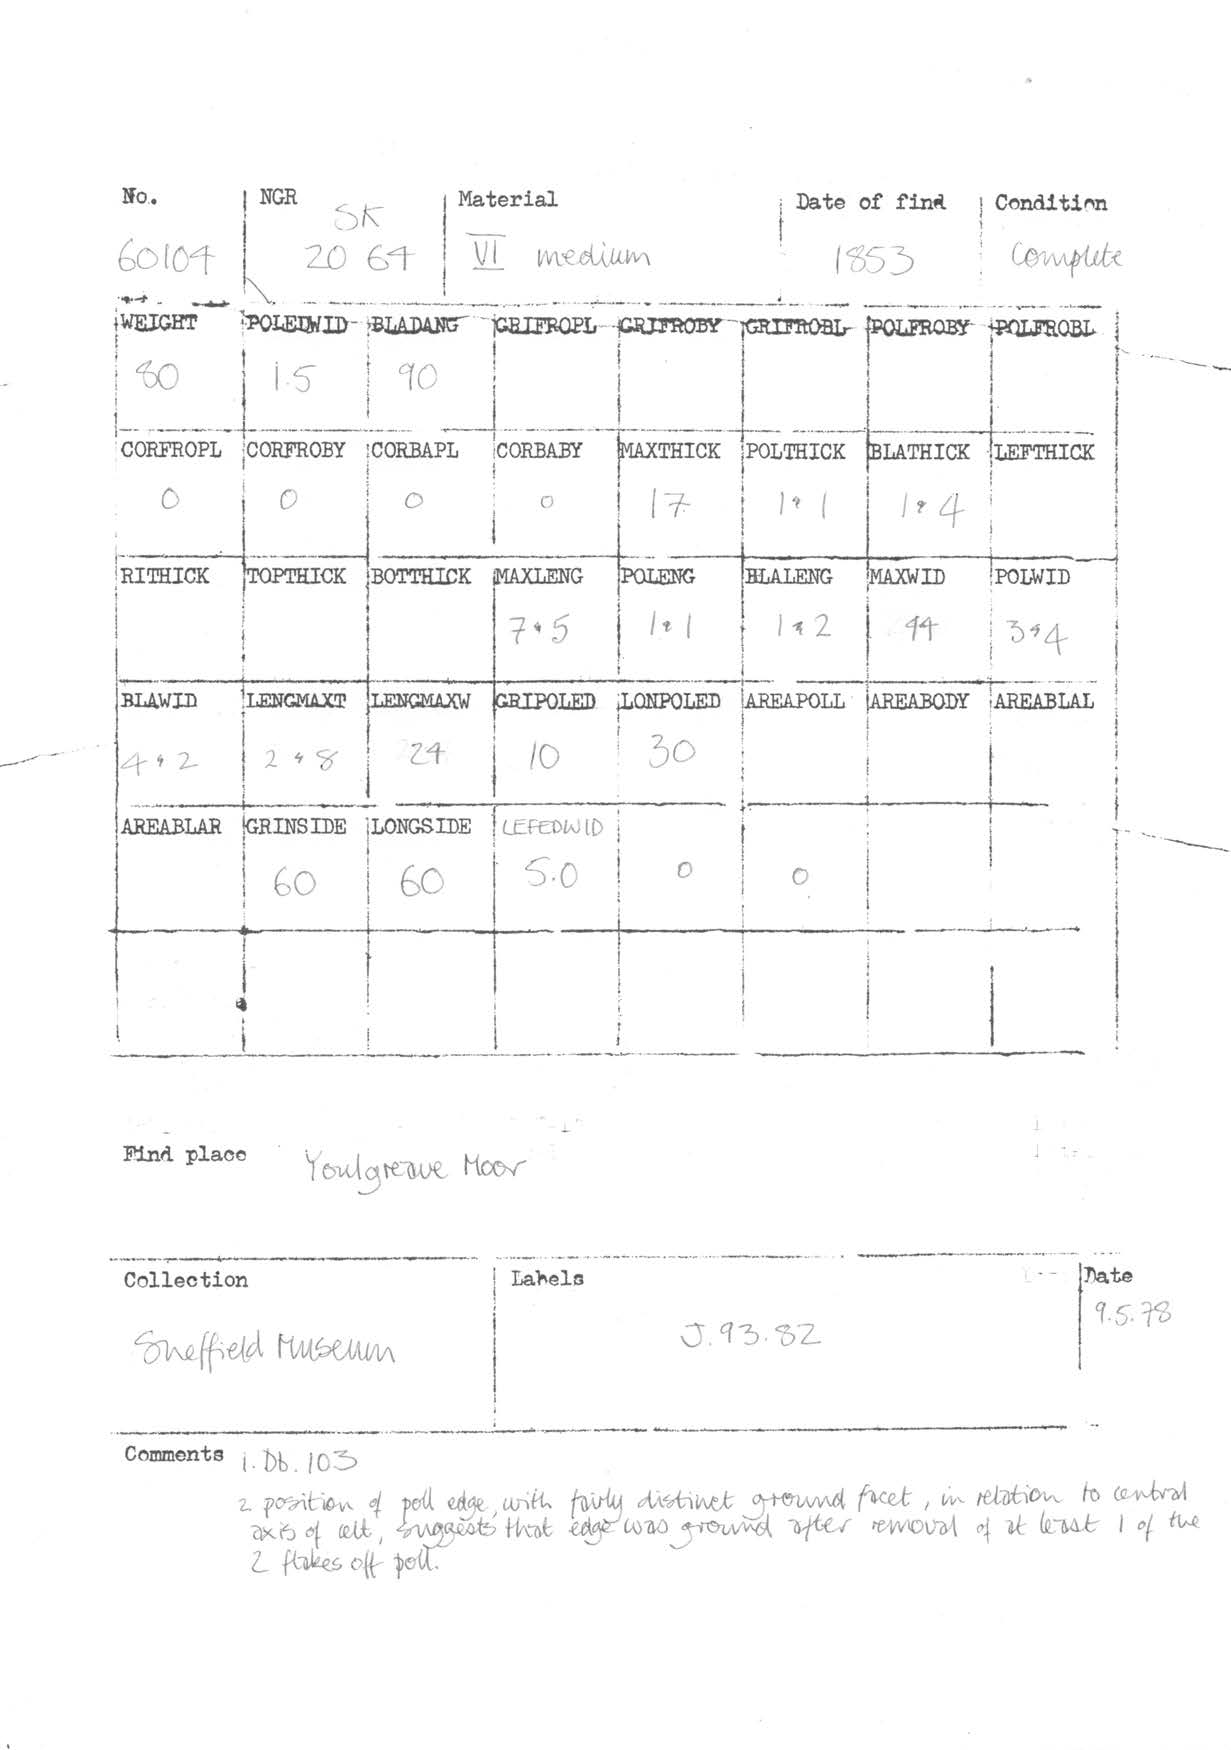 No. NGR Material Date of find Condition
SK
60104 20 64 VI medium 1853 complete
WEIGHT POLEDWID BLADANG GRIFROPL GRIFROBY GRIFROBL POLFROBY POLFROBL
80 1.5 90
CORFROPL CORFROBY CORBAPL CORBABY MAXTHICK POLTHICK BLATHICK LEFTHICK
0 0 0 0 17 1.1 1.4
RITHICK TOPTHICK BOTTHICK MAXLENG POLENG BLALENG MAXWID POLWID
7.5 1.1 1.2 44 3.4
BLAWID LENGMAXT LENGMAXW GRIPOLED LONPOLED AREAPOLL AREABODY AREABLAL
4.2 2.8 24 10 30
AREABLAR GRINSIDE LONGSIDE LEFEDWID
60 60 5.0 0 0
Find place Youlgreave Moor
Collection Labels Date
9.5.78
Sheffield Museum J.93.82
Comments 1. Db. 103
2 position of poll edge, with fairly distinct ground facet, in relation to central
axis of celt, suggests that edge was ground after removal of at least 1 of the
2 flakes off poll.